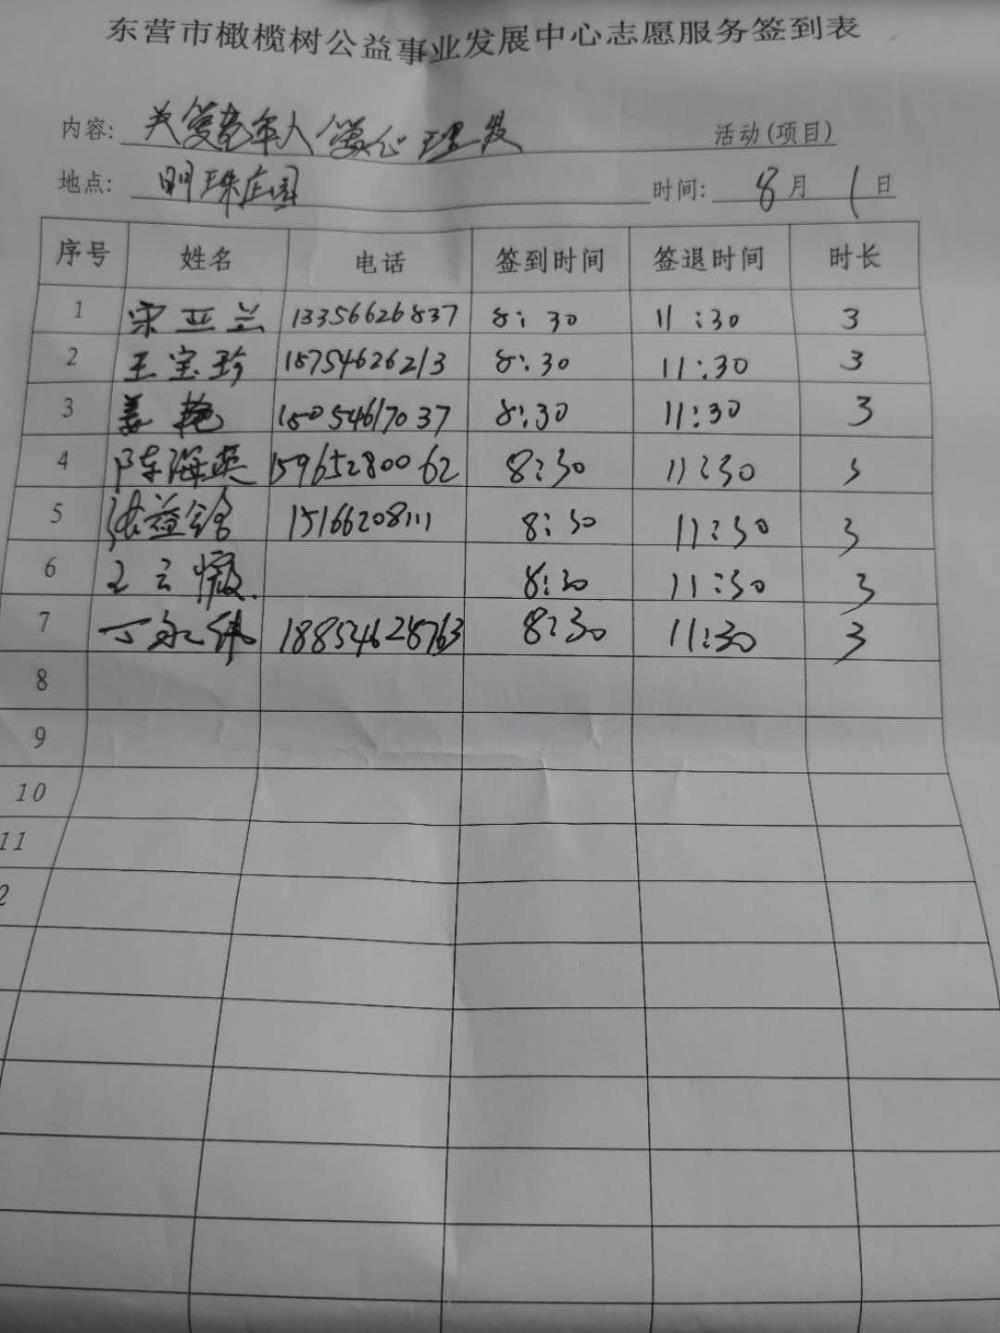 东营市橄榄树公益事业发展中心志愿服务签到表
内容: 关爱老年人 活动(项目)
地点: 明珠庄园 时间: 8月1日
序号 姓名 电话 签到时间 签退时间 时长
1 宋亚兰 13356626837 8:30 11:30 3
2 王宝珍 18754626213 8:30 11:30 3
3 姜艳 18054617037 8:30 11:30 3
4 陈海英 15965280062 8:30 11:30 3
5 张益 15166208111 8:30 11:30 3
6 王云 8:30 11:30 3
7 丁永伟 18854628763 8:30 11:30 3
8
9
10
11
2